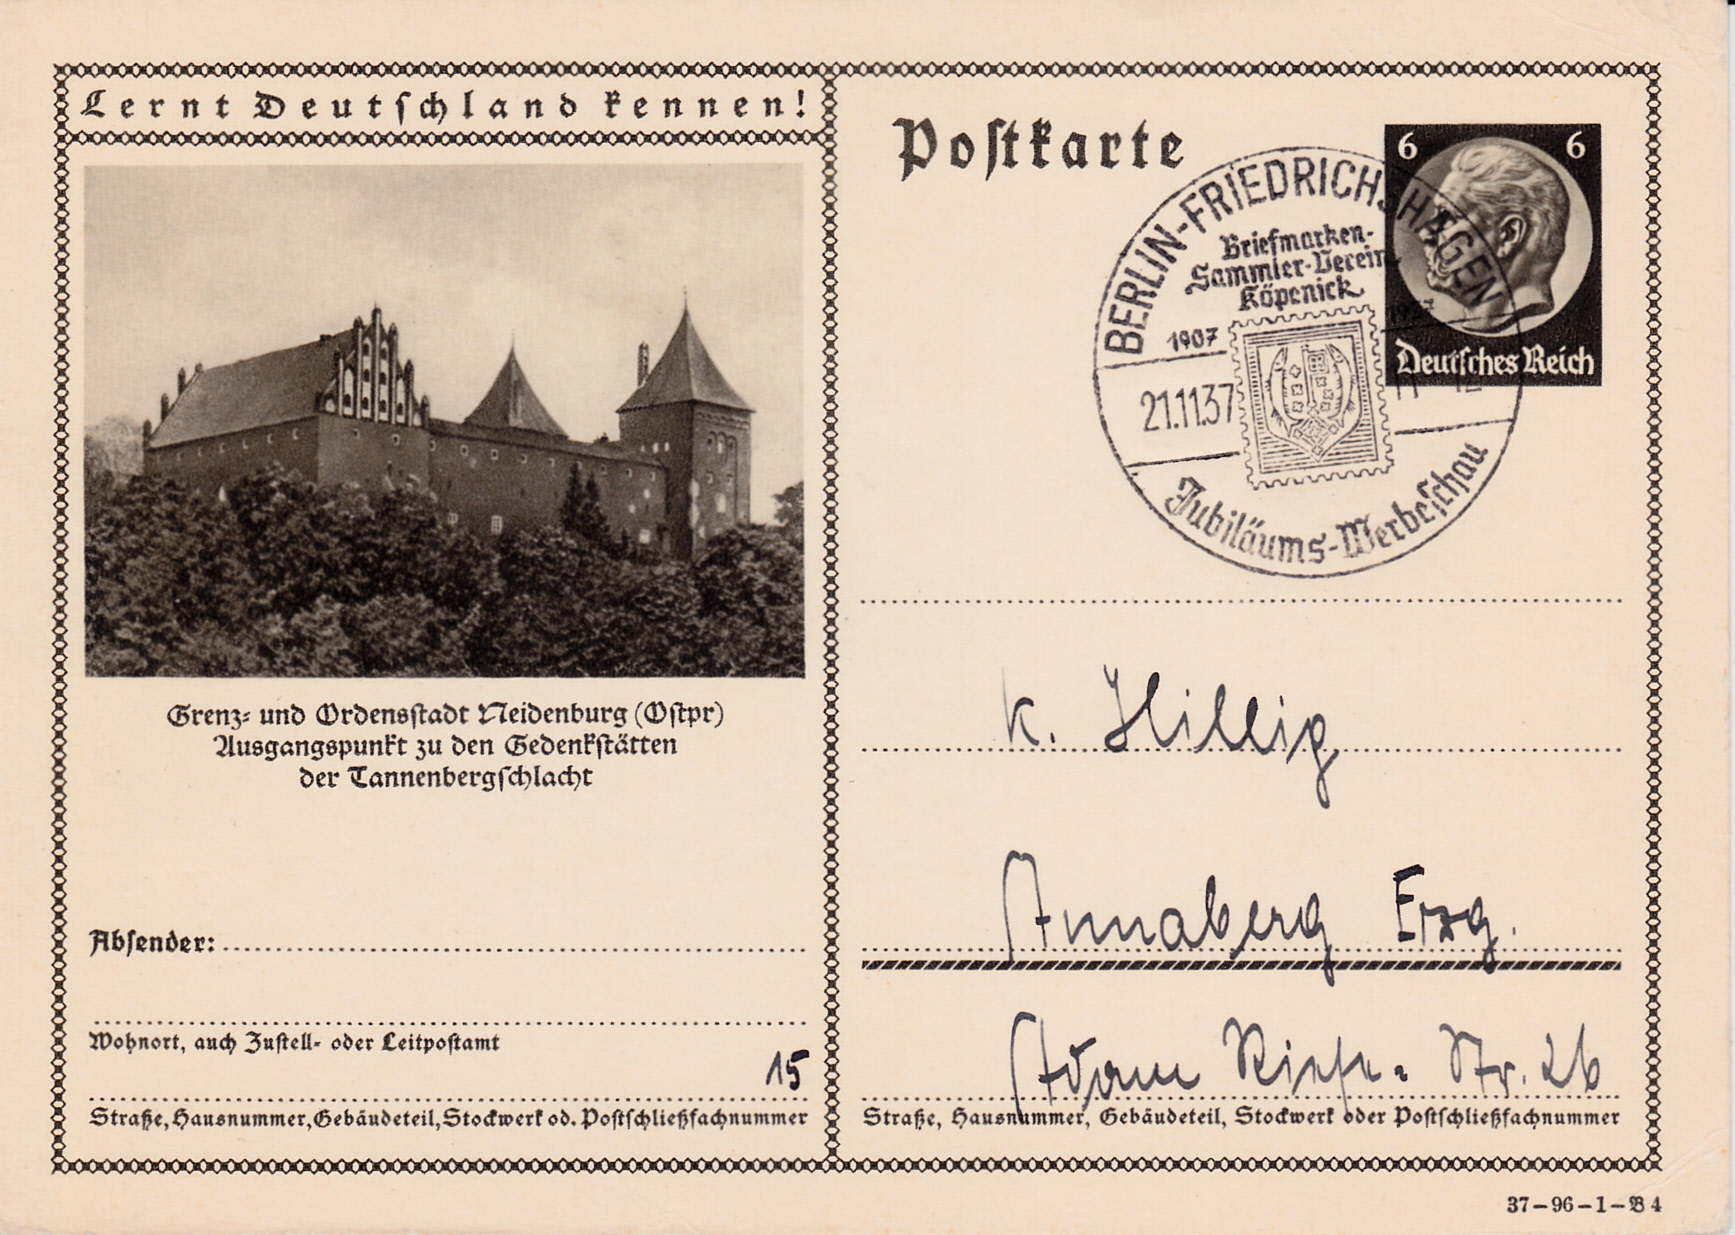 Lernt Deutschland kennen!
Grenz- und Ordensstadt Neidenburg (Ostpr)
Ausgangspunkt zu den Gedenkstätten
der Tannenbergschlacht
Absender:
Wohnort, auch Zustell- oder Leitpostamt
15
Straße, Hausnummer, Gebäudeteil, Stockwerk od. Postschließfachnummer
Postkarte
6 6
Deutsches Reich
BERLIN-FRIEDRICHSHAGEN
Briefmarken-
Sammler-Verein
Köpenick
1907 1937
21.11.37
Jubiläums-Werbeschau
K. Hillig
Annaberg Erzg.
Adam Riese-Str. 26
Straße, Hausnummer, Gebäudeteil, Stockwerk oder Postschließfachnummer
37-96-1-B 4